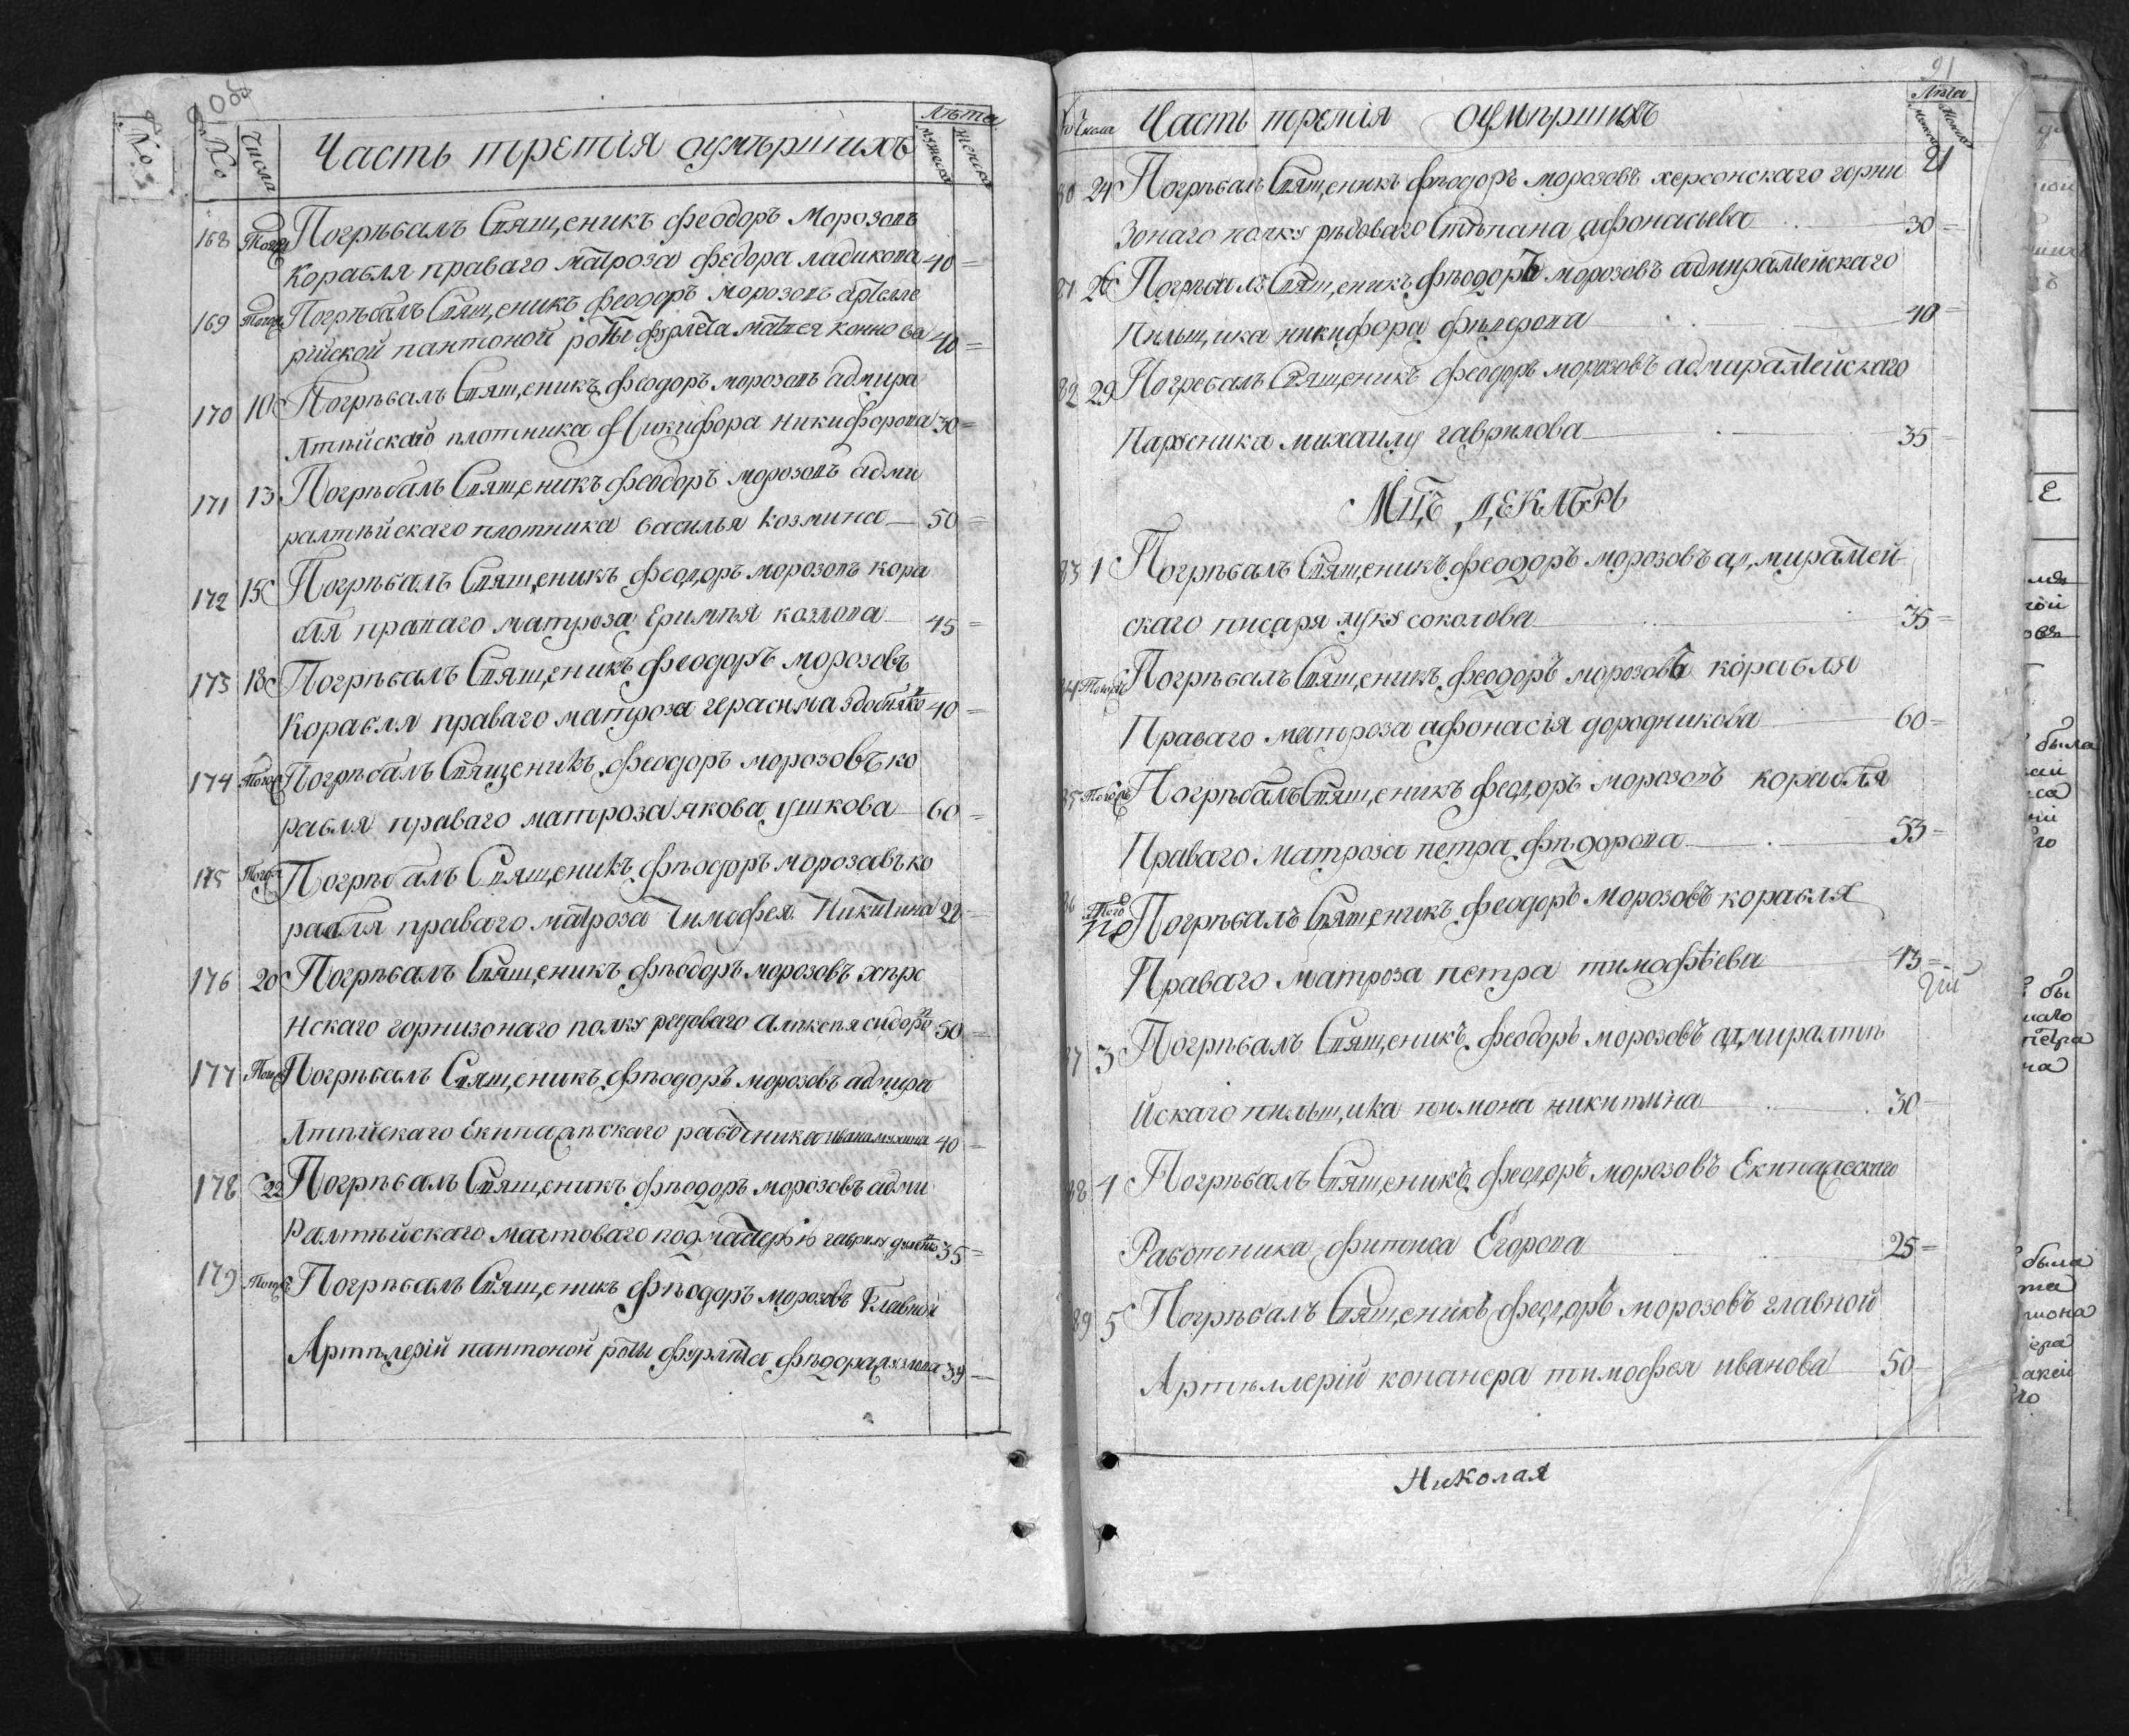 №
Числа
Часть третія оумѣршихъ
Лѣта
мужеска
женска
168 Тогож Погрѣбалъ Священикъ феодоръ Морозовъ
корабля праваго матроза федора ладикова 40 =
169 Тогож Погрѣбалъ Священикъ феодоръ Морозовъ артылле
рійской пантоной роты фурлета матвея коннова 40 =
170 10 Погрѣбалъ Священикъ феодоръ морозовъ адмира
лтѣйскаго плотника никифора никифорова 30 =
171 13 Погрѣбалъ Священикъ феодоръ морозовъ адми
ралтѣйскаго плотника василья козмина 50 =
172 15 Погрѣбалъ Священикъ феодоръ морозовъ кора
бля праваго матроза Еримѣя козлова 45 =
173 18 Погрѣбалъ Священикъ феодоръ морозовъ
корабля праваго матроза герасима 40 =
174 Тогож Погрѣбалъ Священикъ феодоръ морозовъ ко
рабля праваго матроза якова ушкова 60 =
175 Тогож Погрѣбалъ Священикъ фѣодоръ морозавъ ко
рабля праваго матроза Тимофея Никитина 22 =
176 20 Погрѣбалъ Священикъ фѣодоръ морозовъ хѣрсо
нскаго горнизонаго полку редоваго алѣксѣя сидоро 50 =
177 Тогож Погрѣбалъ Священикъ фѣодоръ морозовъ адмира
лтѣйскаго Екипажескаго работника ивана 40 =
178 22 Погрѣбалъ Священикъ фѣодоръ морозовъ адми
ралтѣйскаго мачтоваго подмастерья гаврилу 35 =
179 Тогож Погрѣбалъ Священикъ фѣодоръ морозовъ Главной
Артѣлерій пантоной роты фурлѣта фѣдора 39 =
91
Числа Часть третія оумѣршихъ
Лѣта
80 24 Погрѣбалъ Священикъ фѣодоръ морозовъ херсонскаго горни 21
зонаго полку рѣдоваго Стѣпана афонасьева 30 =
81 26 Погрѣбалъ Священикъ фѣодоръ морозовъ адмиралтейскаго
Пильщика никифора 40 =
82 29 Погребалъ Священикъ феодоръ морозовъ адмиралтейскаго
Парусника михаилу гаврилова 35 =
Мц҃ъ ДЕКАБРЬ
83 1 Погрѣбалъ Священикъ феодоръ морозовъ адмиралтей
скаго писаря луку соколова 35 =
84 Тогож Погрѣбалъ Священикъ феодоръ морозовъ корабля
Праваго матроза афонасія дородникова 60 =
85 Тогож Погрѣбалъ Священикъ феодоръ морозовъ корабля
Праваго матроза петра фѣдорова 53 =
86 Того Погрѣбалъ Священикъ феодоръ морозовъ корабля
Праваго матроза петра тимофѣева 43 =
87 3 Погрѣбалъ Священикъ феодоръ морозовъ адмиралтѣ
йскаго пильщика пимона никитина 30
88 4 Погрѣбалъ Священикъ феодоръ морозовъ Екипажескаго
Работника Егорова 25 =
89 5 Погрѣбалъ Священикъ феодоръ морозовъ главной
Артѣллерій конанера тимофея иванова 50
Николая